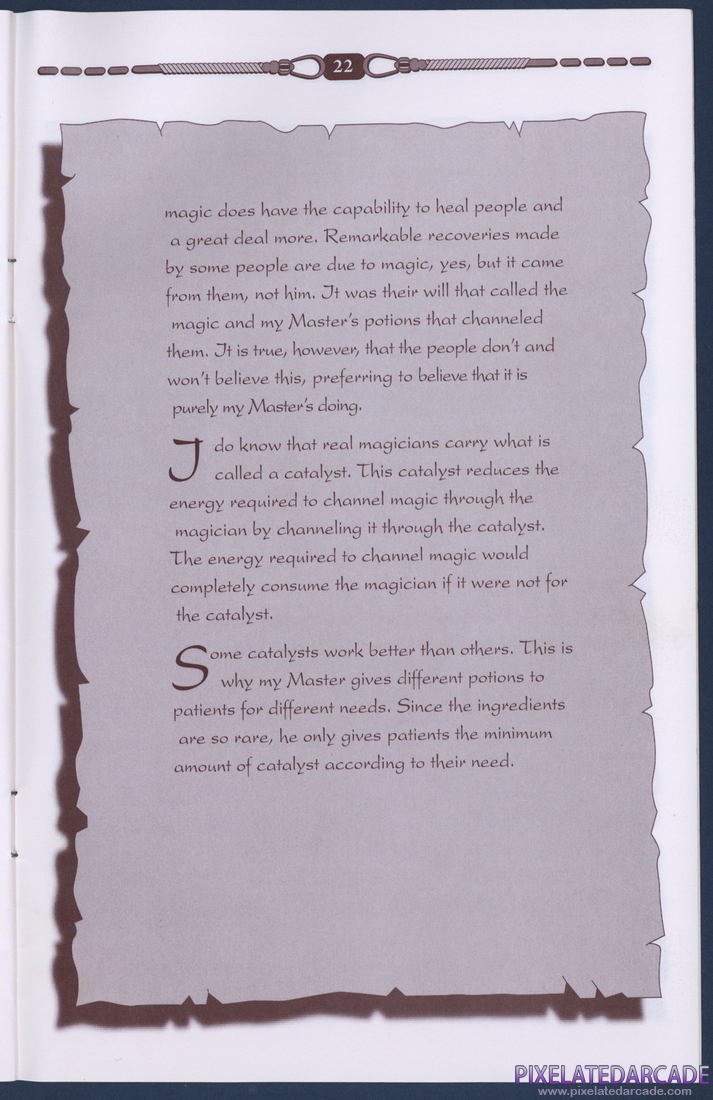 22
magic does have the capability to heal people and
a great deal more. Remarkable recoveries made
by some people are due to magic, yes, but it came
from them, not him. It was their will that called the
magic and my Master's potions that channeled
them. It is true, however, that the people don't and
won't believe this, preferring to believe that it is
purely my Master's doing.
I do know that real magicians carry what is
called a catalyst. This catalyst reduces the
energy required to channel magic through the
magician by channeling it through the catalyst.
The energy required to channel magic would
completely consume the magician if it were not for
the catalyst.
Some catalysts work better than others. This is
why my Master gives different potions to
patients for different needs. Since the ingredients
are so rare, he only gives patients the minimum
amount of catalyst according to their need.
PIXELATEDARCADE
www.pixelatedarcade.com